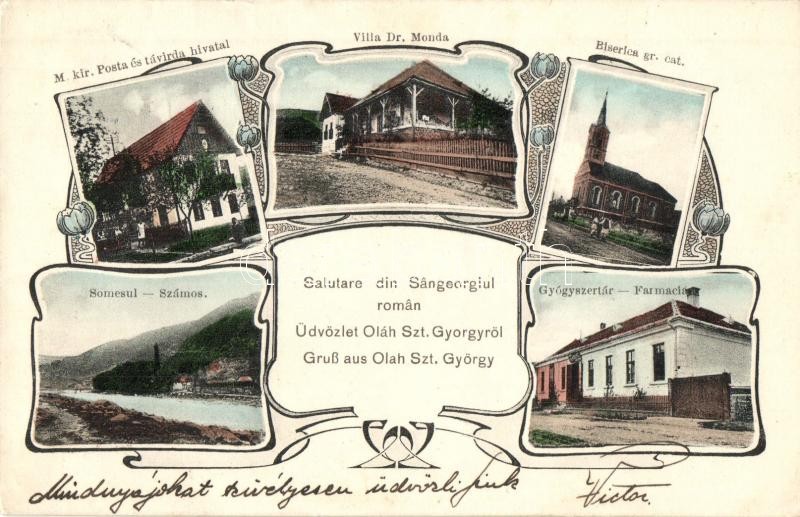 M. kir. Posta és távirda hivatal
Villa Dr. Monda
Biserica gr. cat.
Somesul — Számos.
Gyógyszertár — Farmacia
Salutare din Sângeorgiul
român
Üdvözlet Oláh Szt. Gyorgyröl
Gruß aus Olah Szt. György
Mindnyájokat szivélyesen üdvözli jink
Victor.